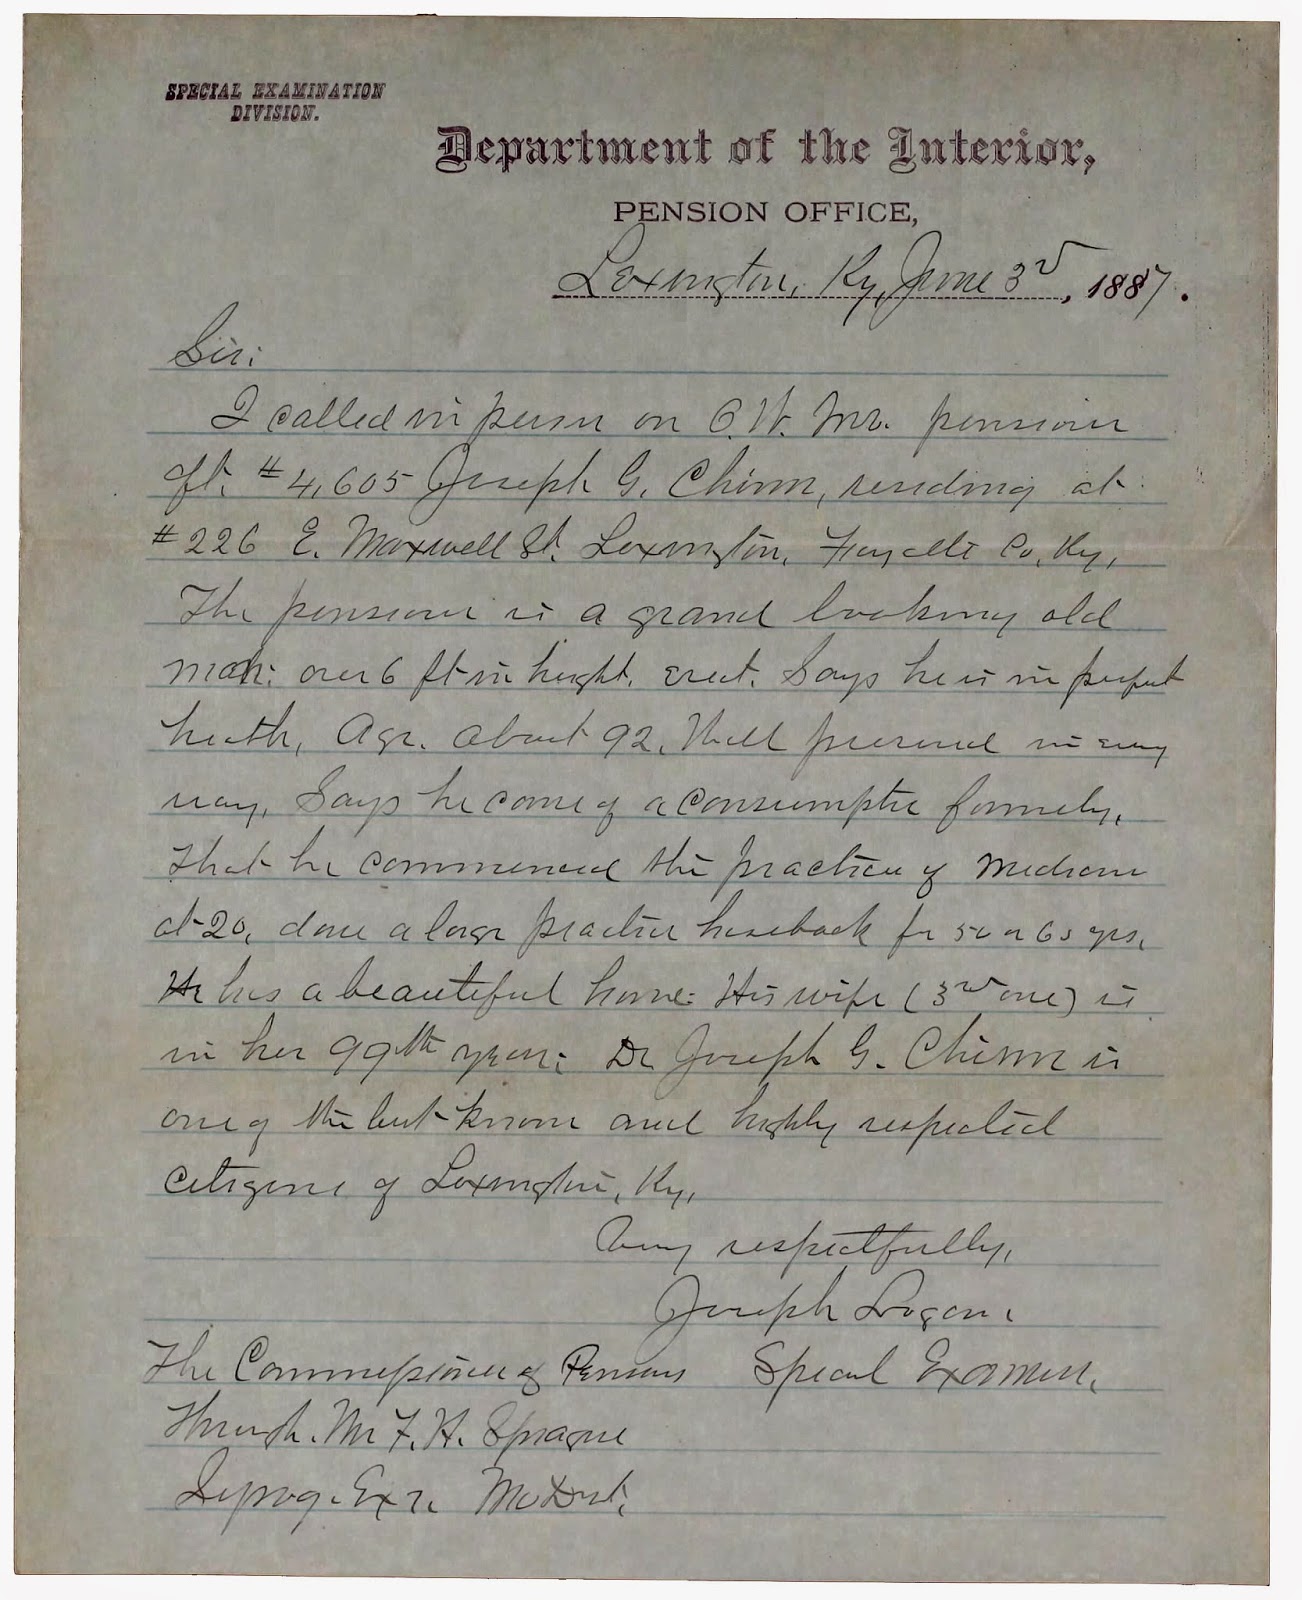 SPECIAL EXAMINATION
DIVISION.
Department of the Interior,
PENSION OFFICE,
Lexington, Ky, June 3d, 1887.
Sir:
I called in person on O.W. Inv. pensioner
Cft. #4,605 Joseph G. Chinn, residing at
#226 E. Maxwell St. Lexington, Fayette Co, Ky,
The pensioner is a grand looking old
man: over 6 ft in height, erect. Says he is in perfect
health, Age. about 92, Well preserved in every
way, Says he come of a consumptive formely,
that he commenced the practice of Medicine
at 20, done a large practice horseback for 50 or 60 yrs.
He has a beautiful home: His wife (3rd one) is
in her 99th year: Dr Joseph G. Chinn is
one of the best known and highly respected
citizens of Lexington, Ky,
Very respectfully,
Joseph Logan.
The Commissioner of Pensions Special Examiner.
Through. Mr F. H. Sprague
Exr.